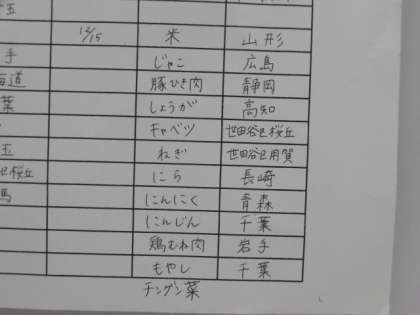 玉
12/15 米 山形
手 じゃこ 広島
海道 豚ひき肉 静岡
葉 しょうが 高知
キャベツ 世田谷区桜丘
玉 ねぎ 世田谷区用賀
区桜丘 にら 長崎
馬 にんにく 青森
にんじん 千葉
鶏むね肉 岩手
もやし 千葉
チンゲン菜